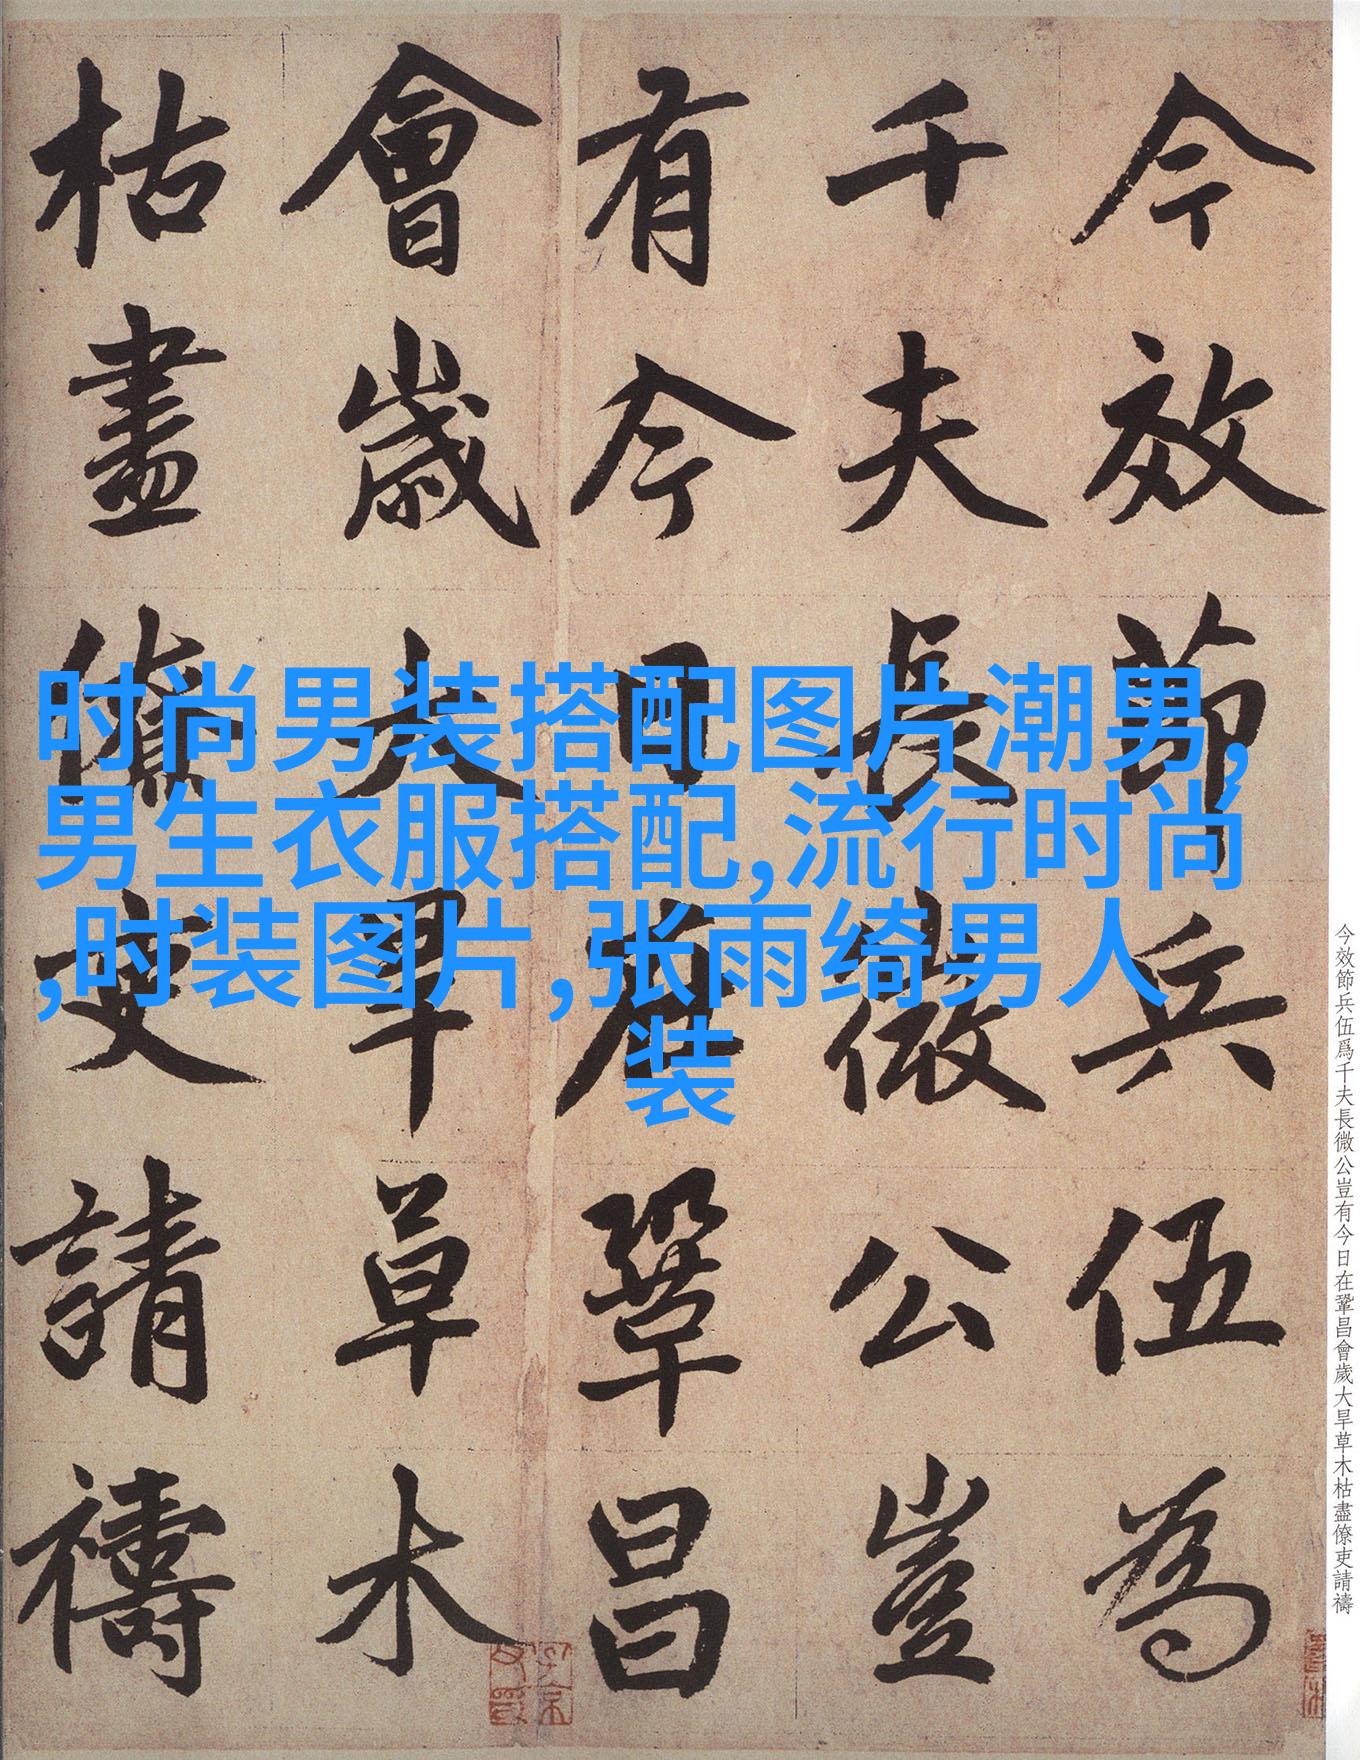 今效節兵伍為
千夫長微公豈
有今日在鞏昌
會歲大旱草木
枯盡僚吏請禱
时尚男装搭配图片潮男,
男生衣服搭配,流行时尚
,时装图片,张雨绮男人
装
今效節兵伍爲千夫長微公豈有今日在鞏昌會歲大旱草木枯盡僚吏請禱